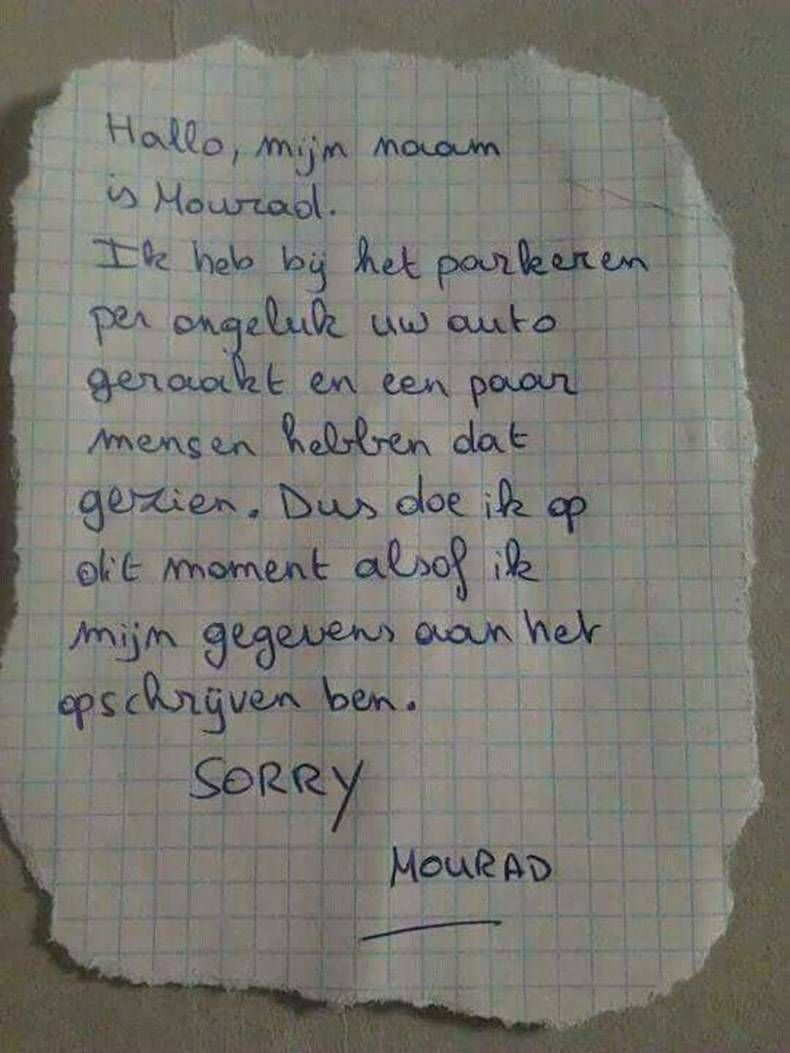 Hallo, mijn naam
is Mourad.
Ik heb bij het parkeren
per ongeluk uw auto
geraakt en een paar
mensen hebben dat
gezien. Dus doe ik op
dit moment alsof ik
mijn gegevens aan het
opschrijven ben.
SORRY
MOURAD